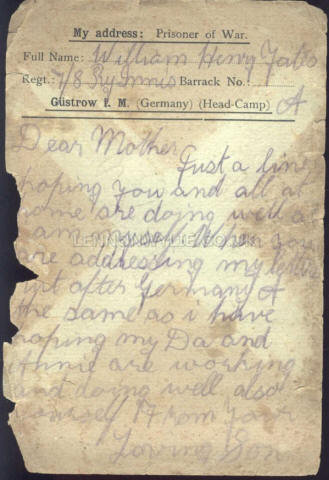 My address: Prisoner of War.
Full Name: William Henry Yates
Regt.: 7/8 Ry Innis Barrack No.:
Güstrow i. M. (Germany) (Head-Camp) A
Dear Mother
Just a line
hoping you and all at
home are doing well as
am myself When you
are addressing my letters
put after Germany A
the same as i have
hoping my Da and
Annie are working
and doing well also
yourself From your
Loving Son
LENNONWYLIE.CO.UK